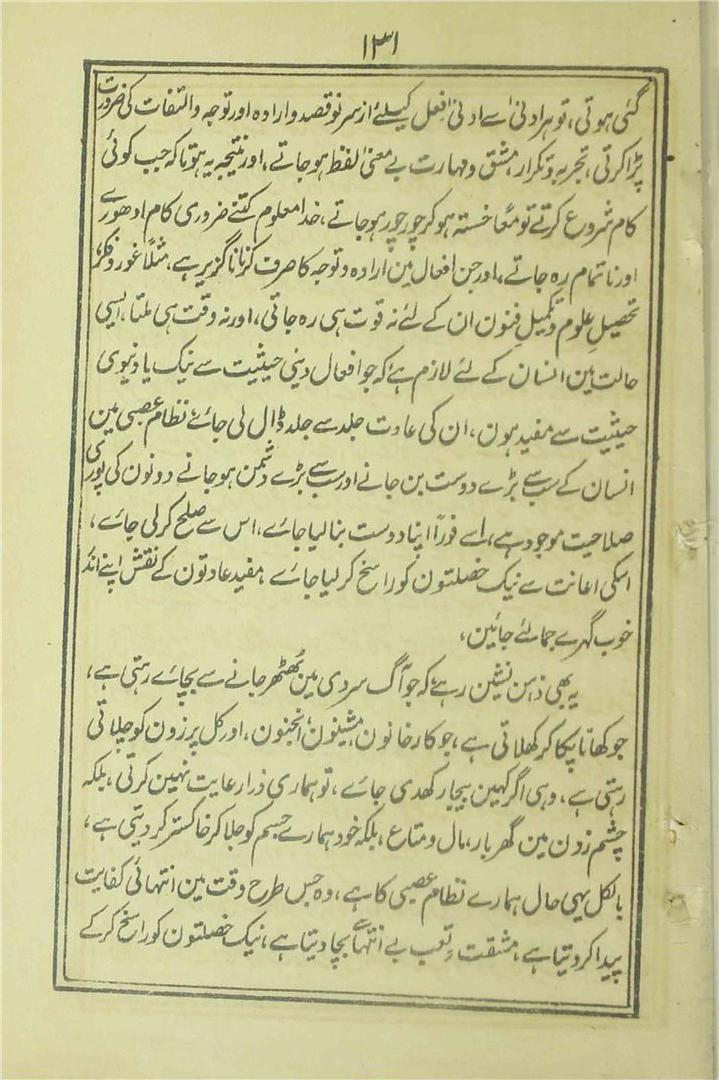 ۱۳۱
گئی ہوتی، تو ہر ادنیٰ سے ادنیٰ فعل کیلئے از سرنو قصد و ارادہ اور توجہ و التفات کی ضرورت
پڑا کرتی، تجربہ و تکرار، مشق و مہارت بے معنی لفظ ہو جاتے، اور نتیجہ یہ ہوتا کہ جب کوئی
کام شروع کرتے تو معًا خستہ ہو کر چور چور ہو جاتے، خدا معلوم کتنے ضروری کام ادھورے
اور نا تمام رہ جاتے، اور جن افعال مین ارادہ و توجہ کا صرف کرنا ناگزیر ہے، مثلًا غور و فکر،
تحصیلِ علوم و تکمیلِ فنون ان کے لئے نہ قوت ہی رہ جاتی، اور نہ وقت ہی ملتا، ایسی
حالت مین انسان کے لئے لازم ہے کہ جو افعال دینی حیثیت سے نیک یا دنیوی
حیثیت سے مفید ہون، ان کی عادت جلد سے جلد ڈال لی جائے، نظام عصبی مین
انسان کے سب سے بڑے دوست بن جانے اور سب سے بڑے دشمن ہو جانے دونون کی پوری
صلاحیت موجود ہے، اسے فورًا اپنا دوست بنا لیا جاے، اس سے صلح کر لی جاے،
اسکی اعانت سے نیک خصلتون کو راسخ کر لیا جاے، مفید عادتون کے نقش اپنے اندر
خوب گہرے جمالئے جائین،
یہ بھی ذہن نشین رہے، کہ جو آگ سردی مین ٹھٹھر جانے سے بچاے رہتی ہے،
جو کھانا پکا کر کھلاتی ہے، جو کارخانون، مشینون، انجنون، اور کل پرزون کو چلاتی
رہتی ہے، وہی اگر کہین بیجا رکھدی جاے، تو ہماری ذرا رعایت نہین کرتی، بلکہ
چشم زدن مین گھر بار، مال و متاع، بلکہ خود ہمارے جسم کو جلا کر خاکستر کر دیتی ہے،
بالکل یہی حال ہمارے نظام عصبی کا ہے، وہ جس طرح وقت مین انتہائی کفایت
پیدا کر دیتا ہے، مشقت و تعب بے انتہاے بچا دیتا ہے، نیک خصلتون کو راسخ کر کے